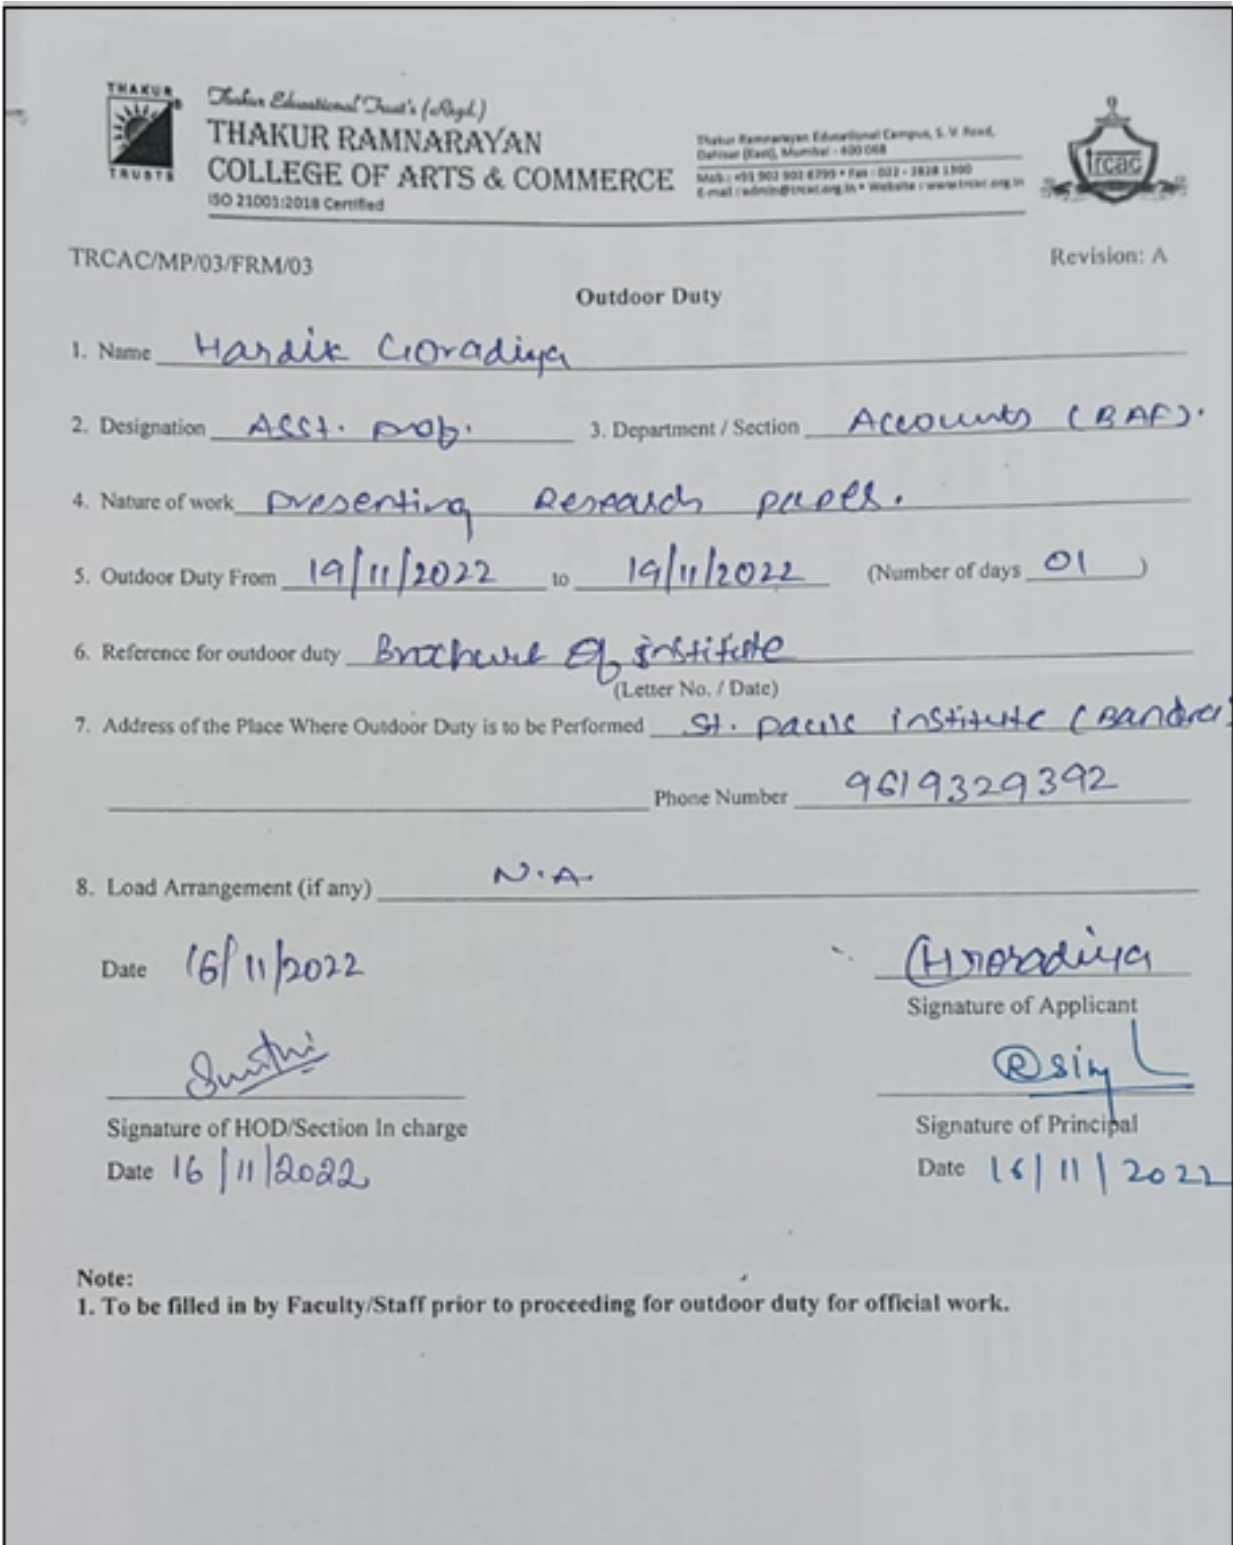 THAKUR
TRUSTS
Thakur Educational Trust's (Regd.)
THAKUR RAMNARAYAN
COLLEGE OF ARTS & COMMERCE
ISO 21001:2018 Certified
Thakur Ramnarayan Educational Campus, S. V. Road,
Dahisar (East), Mumbai - 400 068
Mob.: +91 902 902 6799 • Fax : 022 - 2828 1900
E-mail : admin@trcac.org.in • Website : www.trcac.org.in
trcac
TRCAC/MP/03/FRM/03 Revision: A
Outdoor Duty
1. Name Hardik Goradiya
2. Designation Asst. prof. 3. Department / Section Accounts (BAF).
4. Nature of work presenting Research paper.
5. Outdoor Duty From 19/11/2022 to 19/11/2022 (Number of days 01)
6. Reference for outdoor duty Brochure of institute
(Letter No. / Date)
7. Address of the Place Where Outdoor Duty is to be Performed St. paul's institute (Bandra)
Phone Number 9619329392
8. Load Arrangement (if any) N.A.
Date 16/11/2022 HGoradiya
Signature of Applicant
Signature of HOD/Section In charge Signature of Principal
Date 16/11/2022 Date 16/11/2022
Note:
1. To be filled in by Faculty/Staff prior to proceeding for outdoor duty for official work.